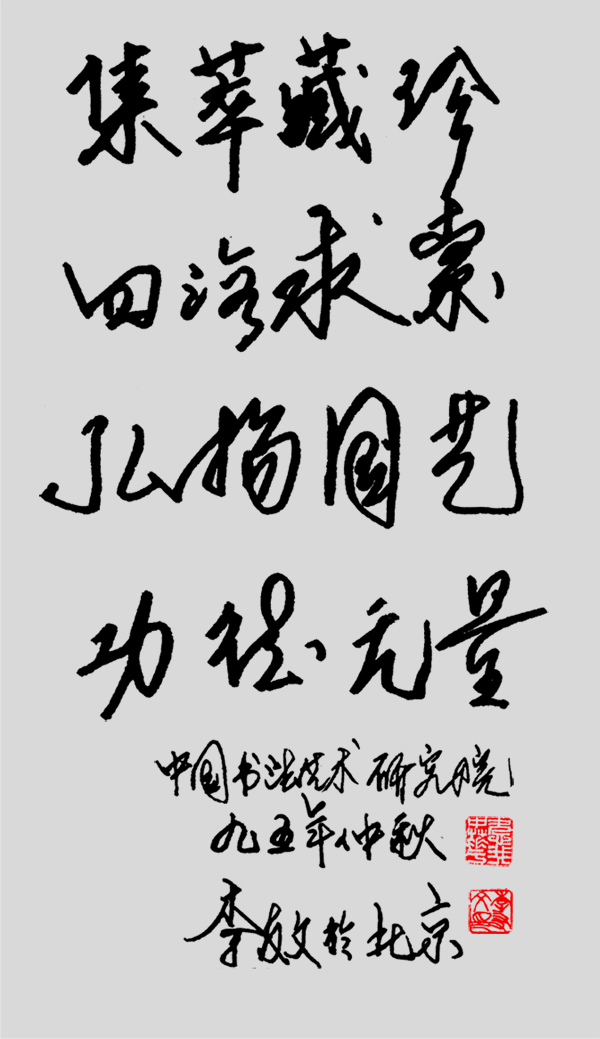 集萃藏珍
四海求索
弘扬国艺
功德无量
中国书法艺术研究院
九五年仲秋
李友文于北京